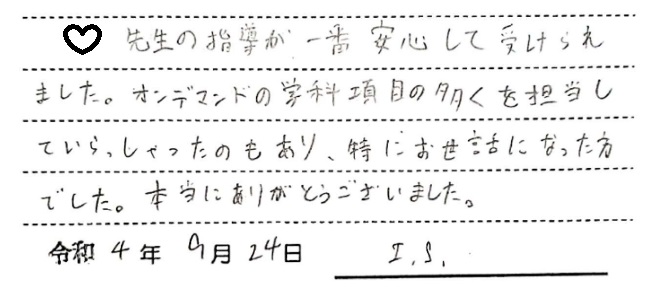 ♡ 先生の指導が一番安心して受けられ
ました。オンデマンドの学科項目の多くを担当し
ていらっしゃったのもあり、特にお世話になった方
でした。本当にありがとうございました。
令和4年9月24日 I.S.